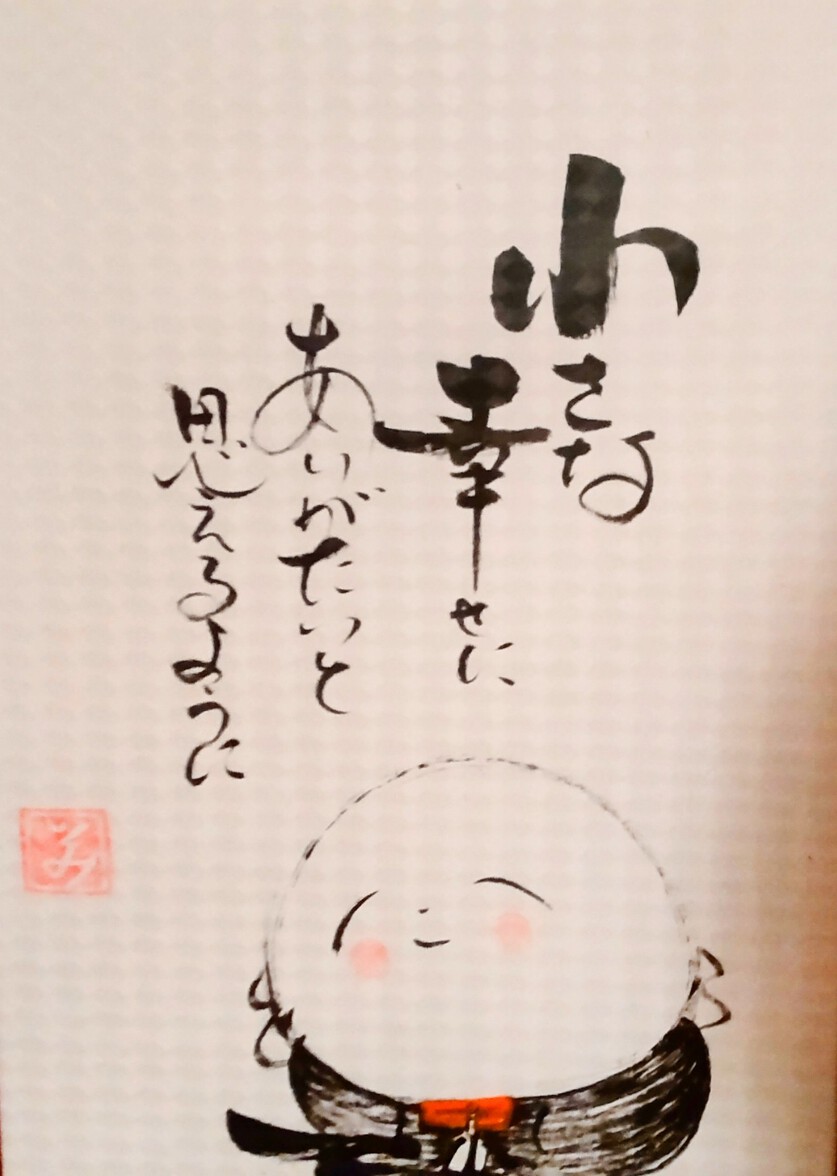 小さな
幸せに
ありがたいと
思えるように